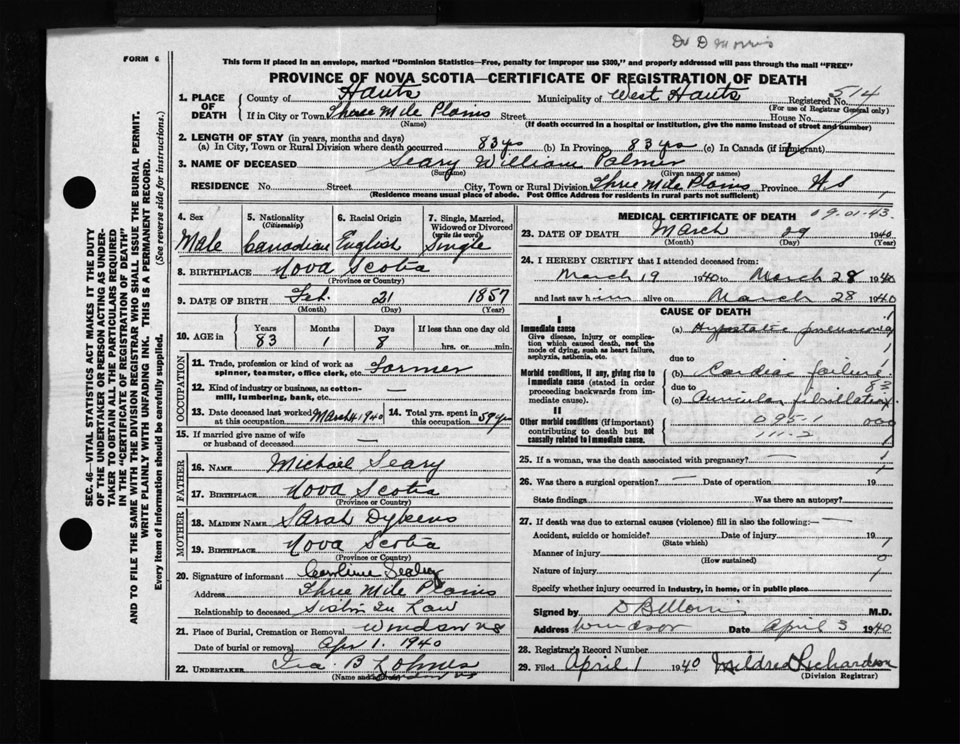 Dr D Morris
FORM 6
This form if placed in an envelope, marked "Dominion Statistics—Free, penalty for improper use $300," and properly addressed will pass through the mail "FREE"
PROVINCE OF NOVA SCOTIA—CERTIFICATE OF REGISTRATION OF DEATH
1. PLACE OF DEATH County of Hants Municipality of West Hants Registered No. 514
(For use of Registrar General only)
If in City or Town Three Mile Plains Street House No.
(Name) (If death occurred in a hospital or institution, give the name instead of street and number)
2. LENGTH OF STAY (in years, months and days)
(a) In City, Town or Rural Division where death occurred 83 yrs (b) In Province 83 yrs (c) In Canada (if immigrant)
3. NAME OF DECEASED Seary William Palmer
(Surname) (Given name or names)
RESIDENCE No. Street City, Town or Rural Division Three Mile Plains Province NS
(Residence means usual place of abode. Post Office Address for residents in rural parts not sufficient) 1
4. Sex 5. Nationality (Citizenship) 6. Racial Origin 7. Single, Married, Widowed or Divorced (write the word)
Male Canadian English Single
8. BIRTHPLACE Nova Scotia
(Province or Country)
9. DATE OF BIRTH Feb. 21 1857
(Month) (Day) (Year)
10. AGE in Years Months Days If less than one day old
83 1 8 hrs. or min.
OCCUPATION
11. Trade, profession or kind of work as spinner, teamster, office clerk, etc. Farmer
12. Kind of industry or business, as cotton-mill, lumbering, bank, etc. —
13. Date deceased last worked at this occupation March 1940 14. Total yrs. spent in this occupation 59 yrs
15. If married give name of wife or husband of deceased —
FATHER
16. NAME Michael Seary
17. BIRTHPLACE Nova Scotia
(Province or Country)
MOTHER
18. MAIDEN NAME Sarah Dykens
19. BIRTHPLACE Nova Scotia
(Province or Country)
20. Signature of informant
Address Three Mile Plains
Relationship to deceased Sister In Law
21. Place of Burial, Cremation or Removal Windsor NS
Date of burial or removal Apr 1. 1940
22. UNDERTAKER Ira B
(Name and address)
MEDICAL CERTIFICATE OF DEATH 09.01.43.
23. DATE OF DEATH March 29 1940
(Month) (Day) (Year)
24. I HEREBY CERTIFY that I attended deceased from:
March 19 1940 to March 28 1940
and last saw him alive on March 28 1940
CAUSE OF DEATH 1
I
Immediate cause (a) Hypostatic pneumonia
Give disease, injury or complication which caused death, not the mode of dying, such as heart failure, asphyxia, asthenia, etc.
due to
Morbid conditions, if any, giving rise to immediate cause (stated in order proceeding backwards from immediate cause).
(b) Cardiac failure
due to 83
(c) Auricular fibrillation
II
Other morbid conditions (if important) contributing to death but not causally related to immediate cause.
095-1 000
111-2 1
25. If a woman, was the death associated with pregnancy? — 1
26. Was there a surgical operation? — Date of operation 19
State findings Was there an autopsy?
27. If death was due to external causes (violence) fill in also the following: —
Accident, suicide or homicide? Date of injury 19
(State which) 1
Manner of injury 0
(How sustained)
Nature of injury 1
Specify whether injury occurred in industry, in home, or in public place
Signed by D B Morris M.D.
Address Windsor Date April 3 1940
28. Registrar's Record Number
29. Filed April 1 1940 Mildred Richardson
(Division Registrar)
SEC. 46—VITAL STATISTICS ACT MAKES IT THE DUTY
OF THE UNDERTAKER OR PERSON ACTING AS UNDER-
TAKER TO OBTAIN ALL THE PARTICULARS REQUIRED
IN THE "CERTIFICATE OF REGISTRATION OF DEATH"
AND TO FILE THE SAME WITH THE DIVISION REGISTRAR WHO SHALL ISSUE THE BURIAL PERMIT.
WRITE PLAINLY WITH UNFADING INK. THIS IS A PERMANENT RECORD.
Every item of information should be carefully supplied. (See reverse side for instructions.)